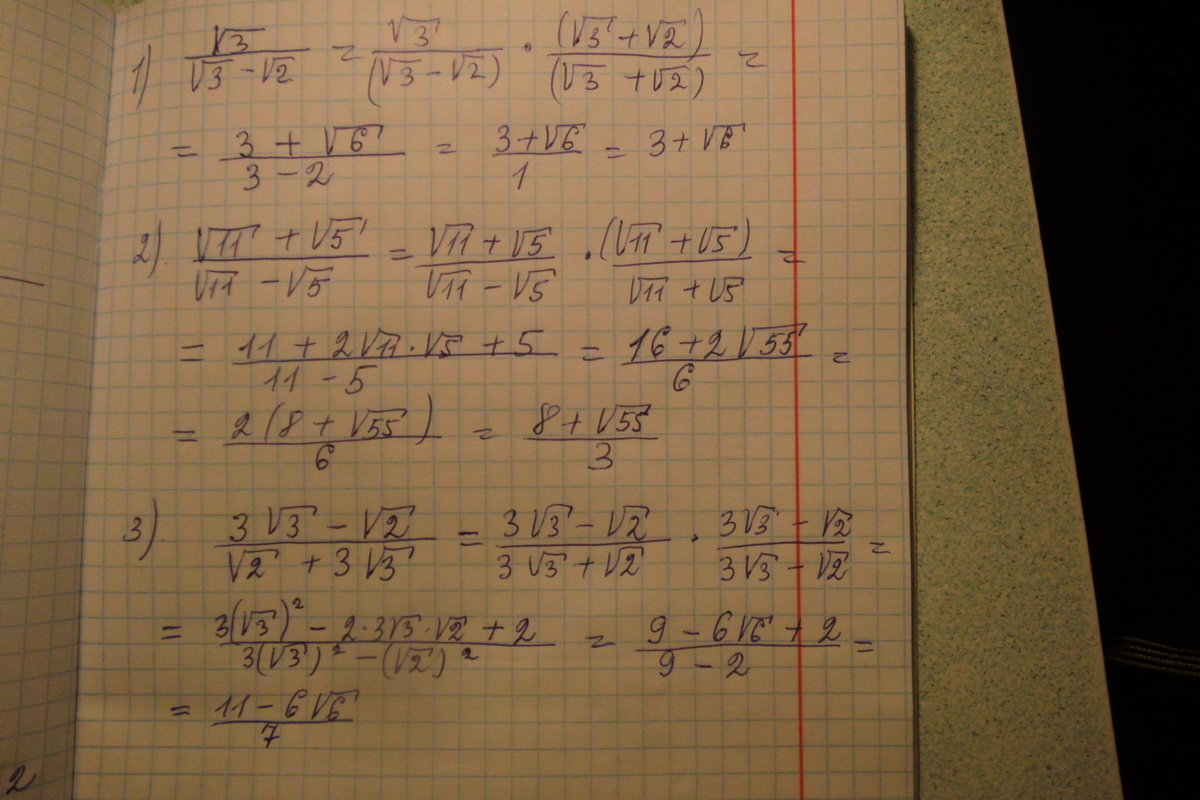 1) √3/(√3 - √2) = √3/(√3 - √2) · (√3 + √2)/(√3 + √2) =
= (3 + √6)/(3 - 2) = (3 + √6)/1 = 3 + √6
2). (√11 + √5)/(√11 - √5) = (√11 + √5)/(√11 - √5) · (√11 + √5)/(√11 + √5) =
= (11 + 2√11 · √5 + 5)/(11 - 5) = (16 + 2√55)/6 =
= 2(8 + √55)/6 = (8 + √55)/3
3). (3√3 - √2)/(√2 + 3√3) = (3√3 - √2)/(3√3 + √2) · (3√3 - √2)/(3√3 - √2) =
= (3(√3)² - 2·3√3·√2 + 2)/(3(√3)² - (√2)²) = (9 - 6√6 + 2)/(9 - 2) =
= (11 - 6√6)/7
2